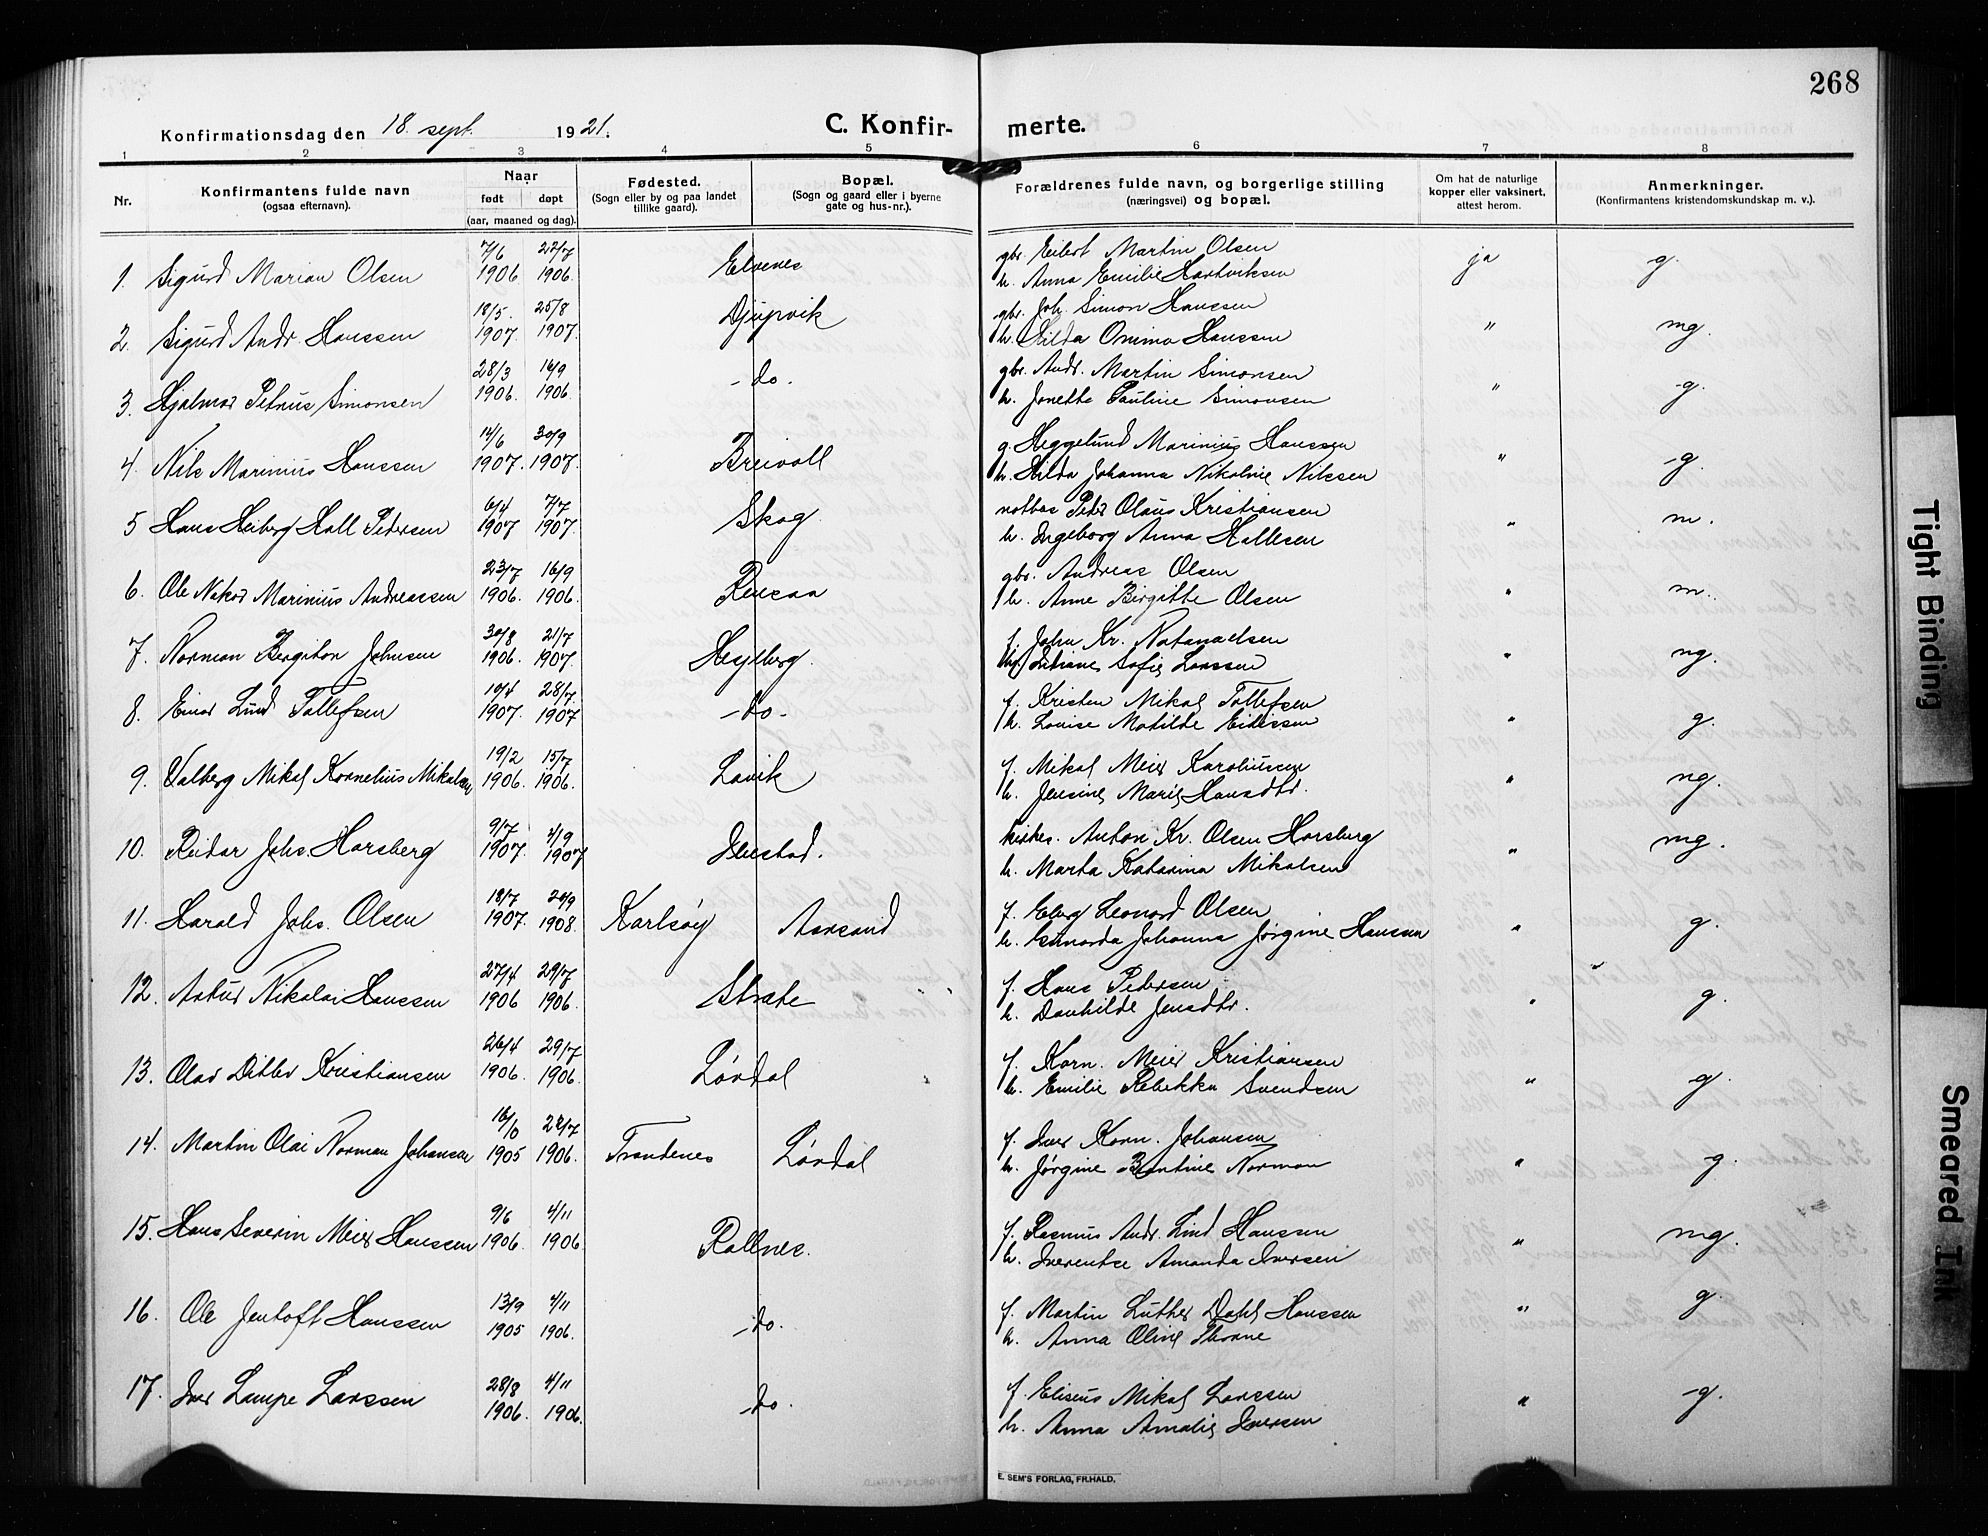 268
Konfirmationsdag den 18. sept. 1921.
C. Konfirmerte.
1 2 3 4 5 6 7 8
Nr.
Konfirmantens fulde navn
(ogsaa efternavn).
Naar
født døpt
(aar, maaned og dag).
Fødested.
(Sogn eller by og paa landet
tillike gaard).
Bopæl.
(Sogn og gaard eller i byerne
gate og hus-nr.).
Forældrenes fulde navn, og borgerlige stilling
(næringsvei) og bopæl.
Om hat de naturlige
kopper eller vaksinert,
attest herom.
Anmerkninger.
(Konfirmantens kristendomskundskap m. v.).
1. Sigurd Marian Olsen 7/6 1906 22/7 1906. Elvenes gbr. Eilert Martin Olsen ja g.
h. Anna Emilie Hartviksen
2. Sigurd Andr. Hanssen 18/5. 1907. 25/8 1907. Djupvik gbr. Joh. Simon Hanssen " mg.
h. Hilda Omine Hanssen
3. Hjalmar Petrus Simonsen 28/3 1906. 16/9 1906. - do. gbr. Andr. Martin Simonsen " g.
h. Jonette Pauline Simonsen
4. Nils Marinius Hanssen 14/6 1907. 30/9 1907. Breivoll g. Heggelund Marinius Hanssen " g.
h. Hilda Johanna Nikoline Nilssen
5 Hans Heiberg Hall Pedersen 6/4 1907 7/7 1907. Skog notbas Peder Olaus Kristiansen " m.
h. Ingeborg Anna Hallesen
6. Ole Nekor Marinius Andreassen 23/7 1906. 16/9 1906. Rensaa gbr. Andreas Olsen " m.
h. Anne Birgitte Olsen
7. Norman Bergiton Johnsen 30/8 1906. 21/7 1907. Hesjeberg. f. John Kr. Natanaelsen " ng.
h. Sofie Larssen
8. Einar Lind Tollefsen 10/4 1907. 28/7. 1907 - do - f. Kristen Mikal Tollefsen " g.
h. Louise Matilde Eidissen
9. Valberg Mikal Kornelius Mikalsen 19/2 1906. 15/7 1906. Lavik f. Mikal Meier Karoliussen " ng.
h. Jensine Marie Hansdtr.
10. Reidar Johs. Horsberg 9/7 1907. 1/9 1907 Ibestad. Anton Kr. Olsen Horsberg " mg.
h. Marta Katarina Mikalsen
11. Harald Johs. Olsen 18/7 1907. 20/9 1908. Karlsøy Aarsand f. Eberg Leonard Olsen " g.
h. Johanna Jørgine Hansen
12. Artur Nikolai Hanssen 27/4 1906 29/7 1906. Strate f. Hans Pedersen " g.
h. Danhilde Jensdtr.
13. Olav Ditlev Kristiansen 26/4 1906. 29/7 1906. Løvdal f. Korn. Meier Kristiansen " g.
h. Emilie Rebekka Svendsen
14. Martin Olai Norman Johansen 16/10 1905 22/7 1906. Trondenes Løvdal f. Iver Korn. Johansen " g.
h. Jørgine Berntine Norman
15. Hans Severin Meier Hanssen 9/6 1906. 4/11 1906 Rollnes. f. Rasmus Andr. Lind Hanssen " mg.
h. Iverentse Amanda Iversen
16. Ole Jentoft Hanssen 13/9 1905 4/11 1906. - do. f. Martin Luther Dahl Hanssen " g.
h. Anna Oline Thrane
17. Iver Lampe Larssen 28/8 1906. 4/11 1906. - do. f. Eliseus Mikal Larssen " g.
h. Anna Amalie Iversen
E. SEM'S FORLAG, FR.HALD.
Tight Binding
Smeared Ink